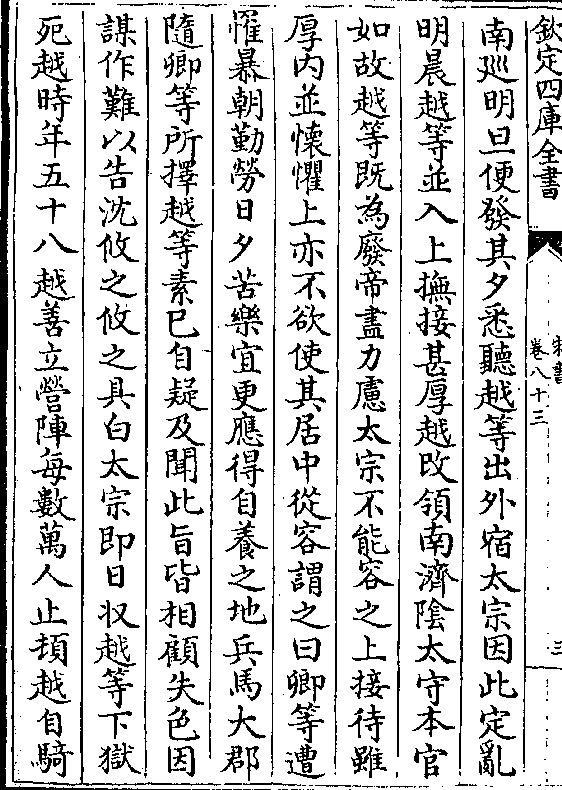 欽定四庫全書
宋書
卷八十三
三
南廵明旦便發其夕悉聽越等出外宿太宗因此定亂
明晨越等並入上撫接甚厚越改領南濟陰太守本官
如故越等既為廢帝盡力慮太宗不能容之上接待雖
厚内並懐懼上亦不欲使其居中從容謂之曰卿等遭
罹暴朝勤勞日夕苦樂宜更應得自養之地兵馬大郡
隨卿等所擇越等素已自疑及聞此旨皆相顧失色因
謀作難以告沈攸之攸之具白太宗即日收越等下獄
死越時年五十八越善立營陣每數萬人止頓越自騎